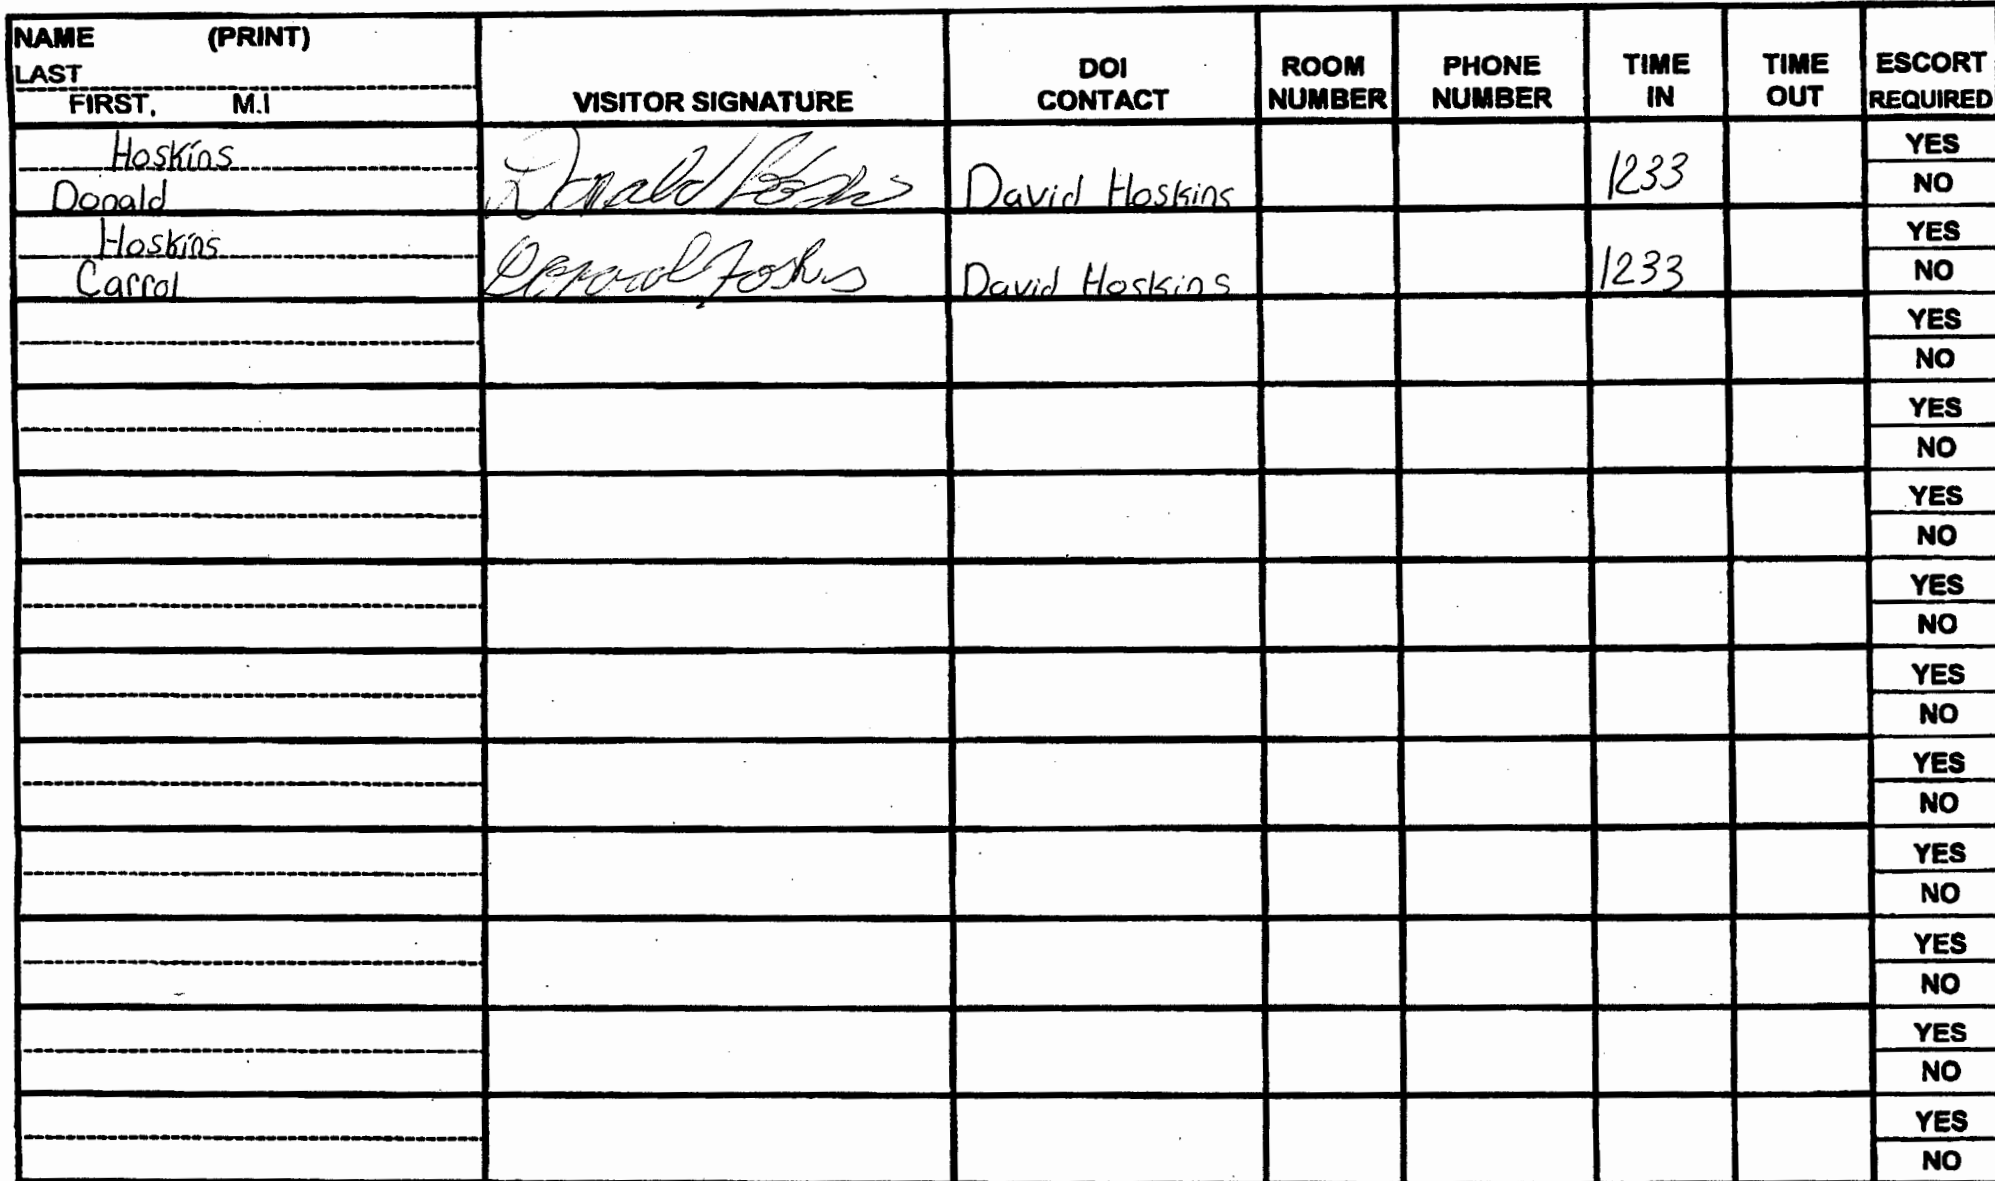 NAME (PRINT)
LAST
FIRST, M.I
VISITOR SIGNATURE
DOI
CONTACT
ROOM
NUMBER
PHONE
NUMBER
TIME
IN
TIME
OUT
ESCORT
REQUIRED
Hoskins
Donald
Donald Hoskins
David Hoskins
1233
YES
NO
Hoskins
Carrol
Carrol Hoskins
David Hoskins
1233
YES
NO
YES
NO
YES
NO
YES
NO
YES
NO
YES
NO
YES
NO
YES
NO
YES
NO
YES
NO
YES
NO